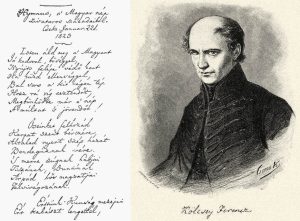 Hymnus, a' Magyar nép
zivataros századaiból.
Cseke, Januar. 22d.
1823
Isten áldd meg a' Magyart
Jó kedvvel, bőséggel,
Nyújts feléje védő kart
Ha küzd ellenséggel;
Bal sors a' kit régen tép,
Hozz rá víg esztendőt,
Megbünhödte már e' nép
A' multat 's jövendőt!
Őseinket felhozád
Kárpát szent bérczére,
Általad nyert szép hazát
Bendegúznak vére.
'S merre zúgnak habjai
Tiszának, Dunának,
Árpád' hős magzatjai
Felvirágozának.
Értünk Kunság' mezejin
Ért kalászt lengettél,
Kölcsey Ferencz